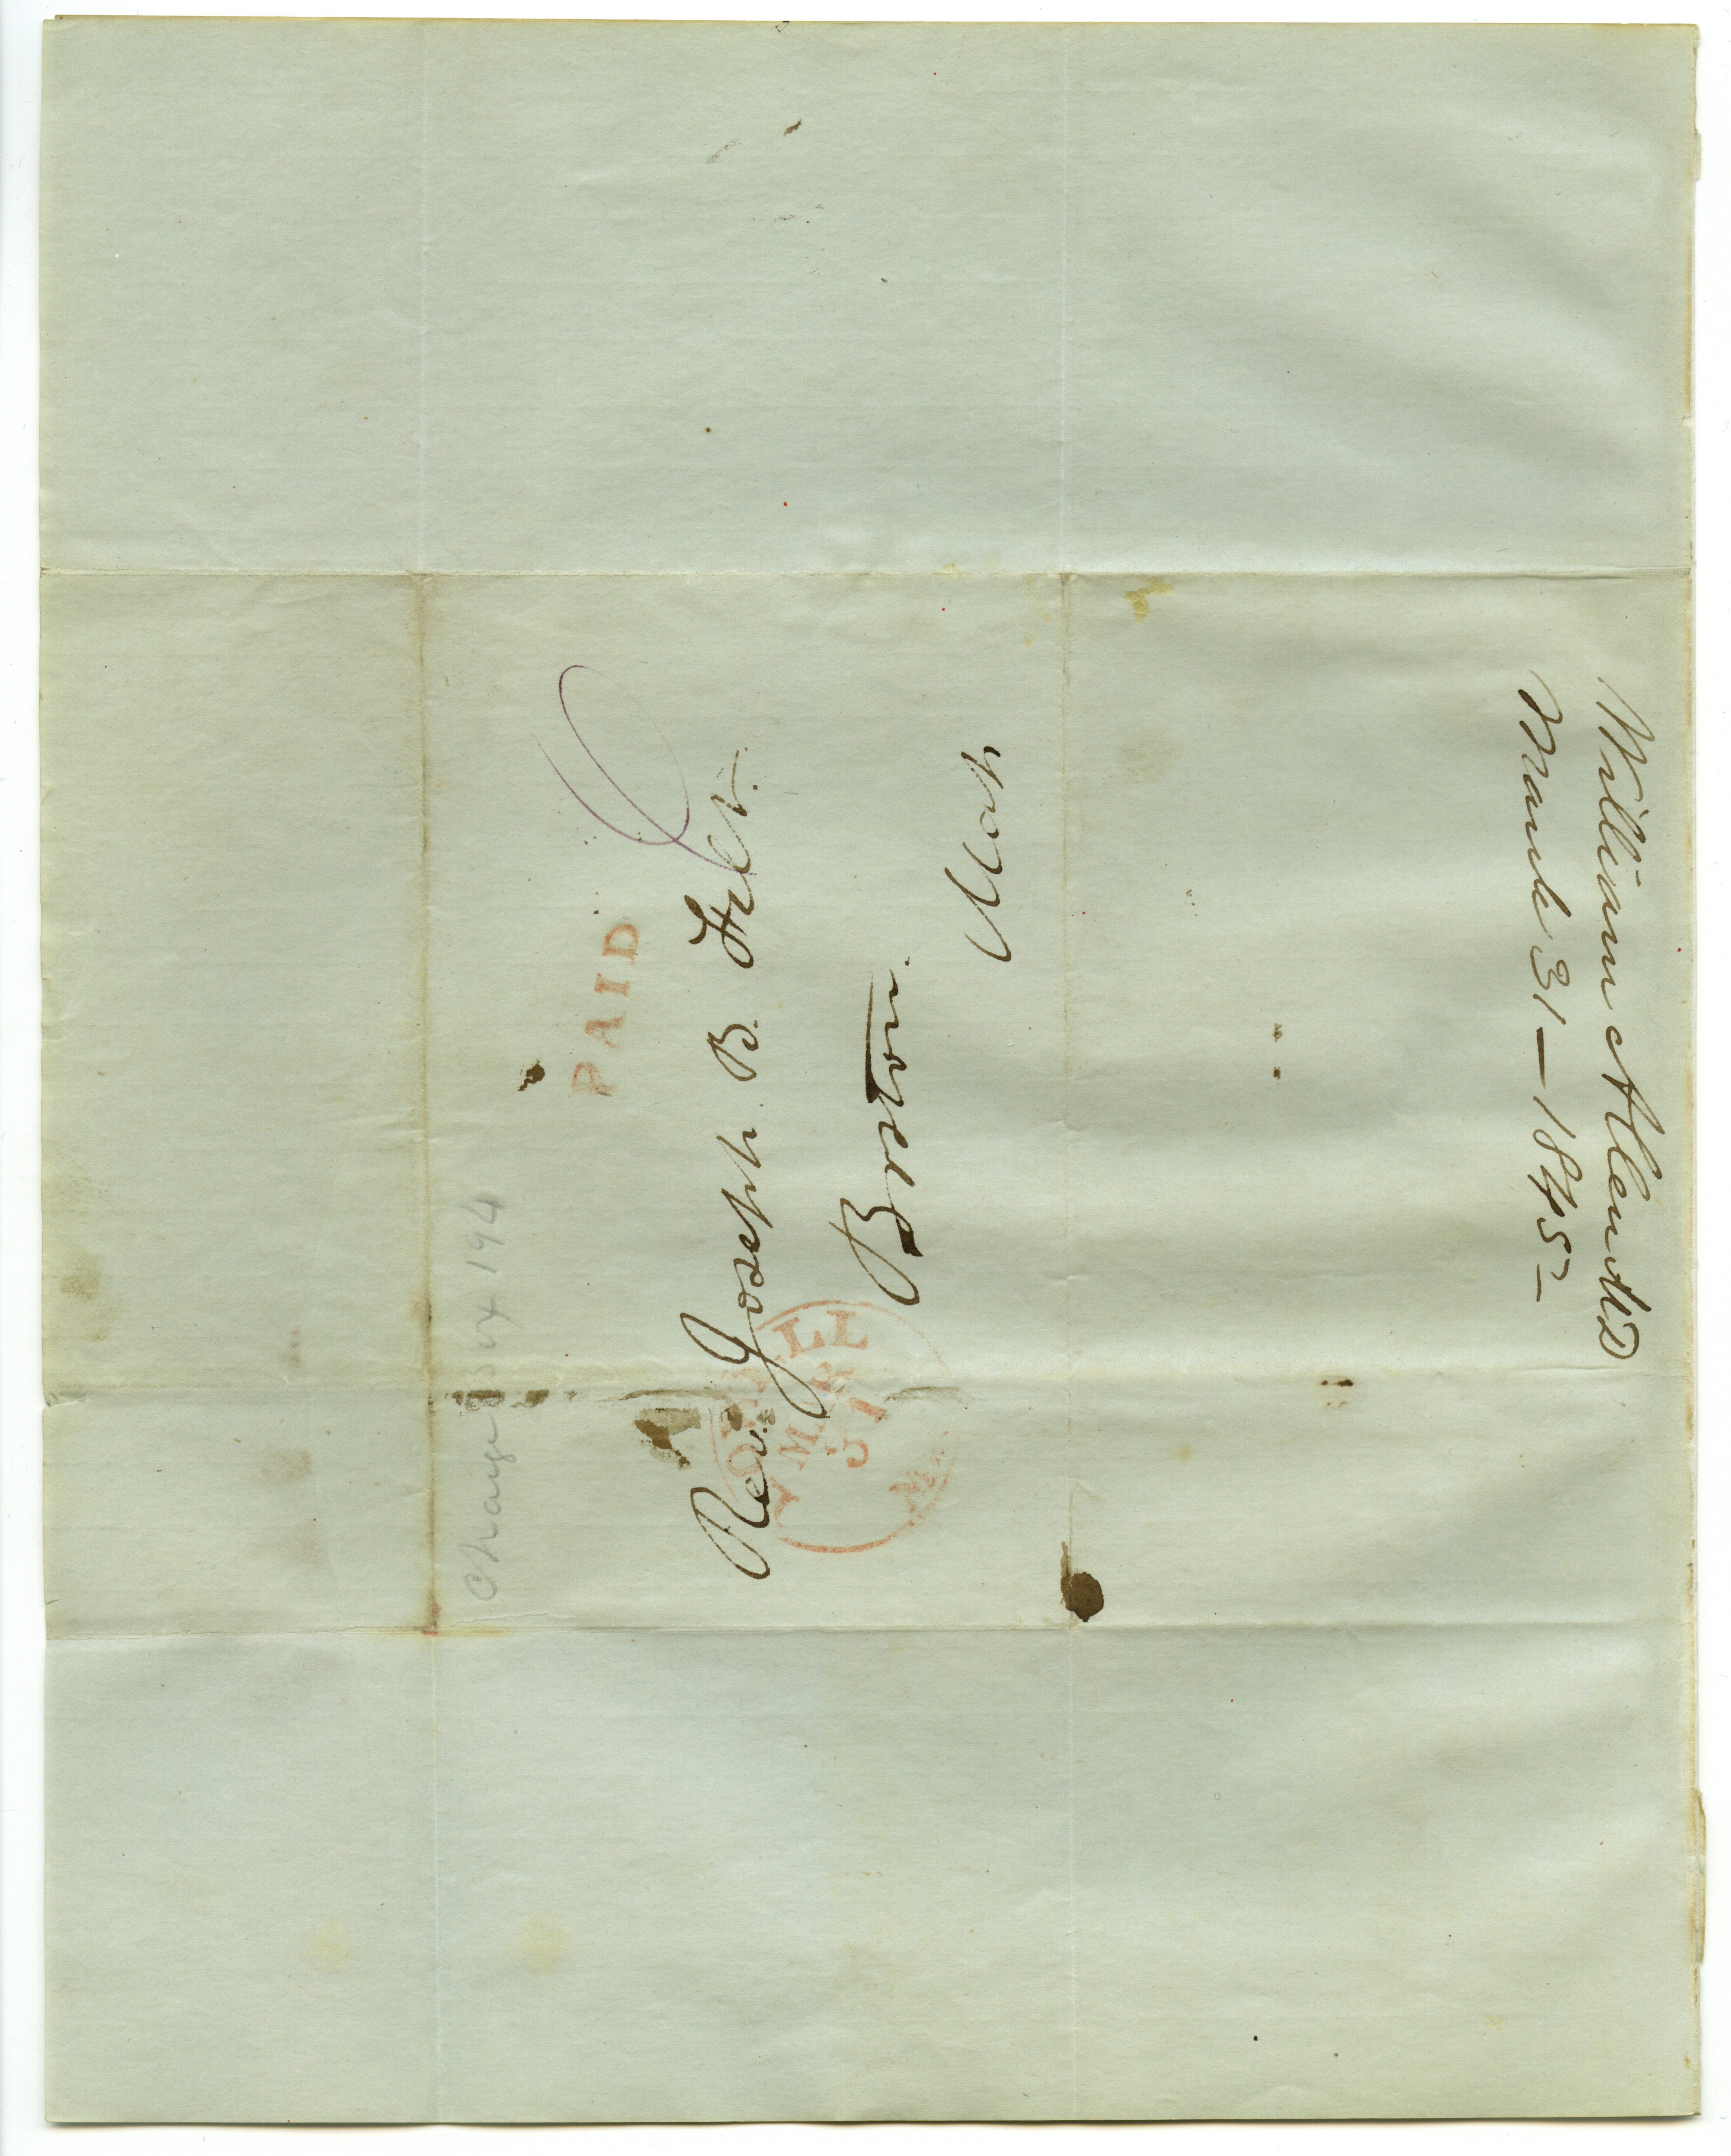 Charge Box 194
PAID
6
Rev. Joseph B. Felt.
Boston.
LOWELL
MAR
31
Ms.
William Allen DD
March 31 — 1845 —